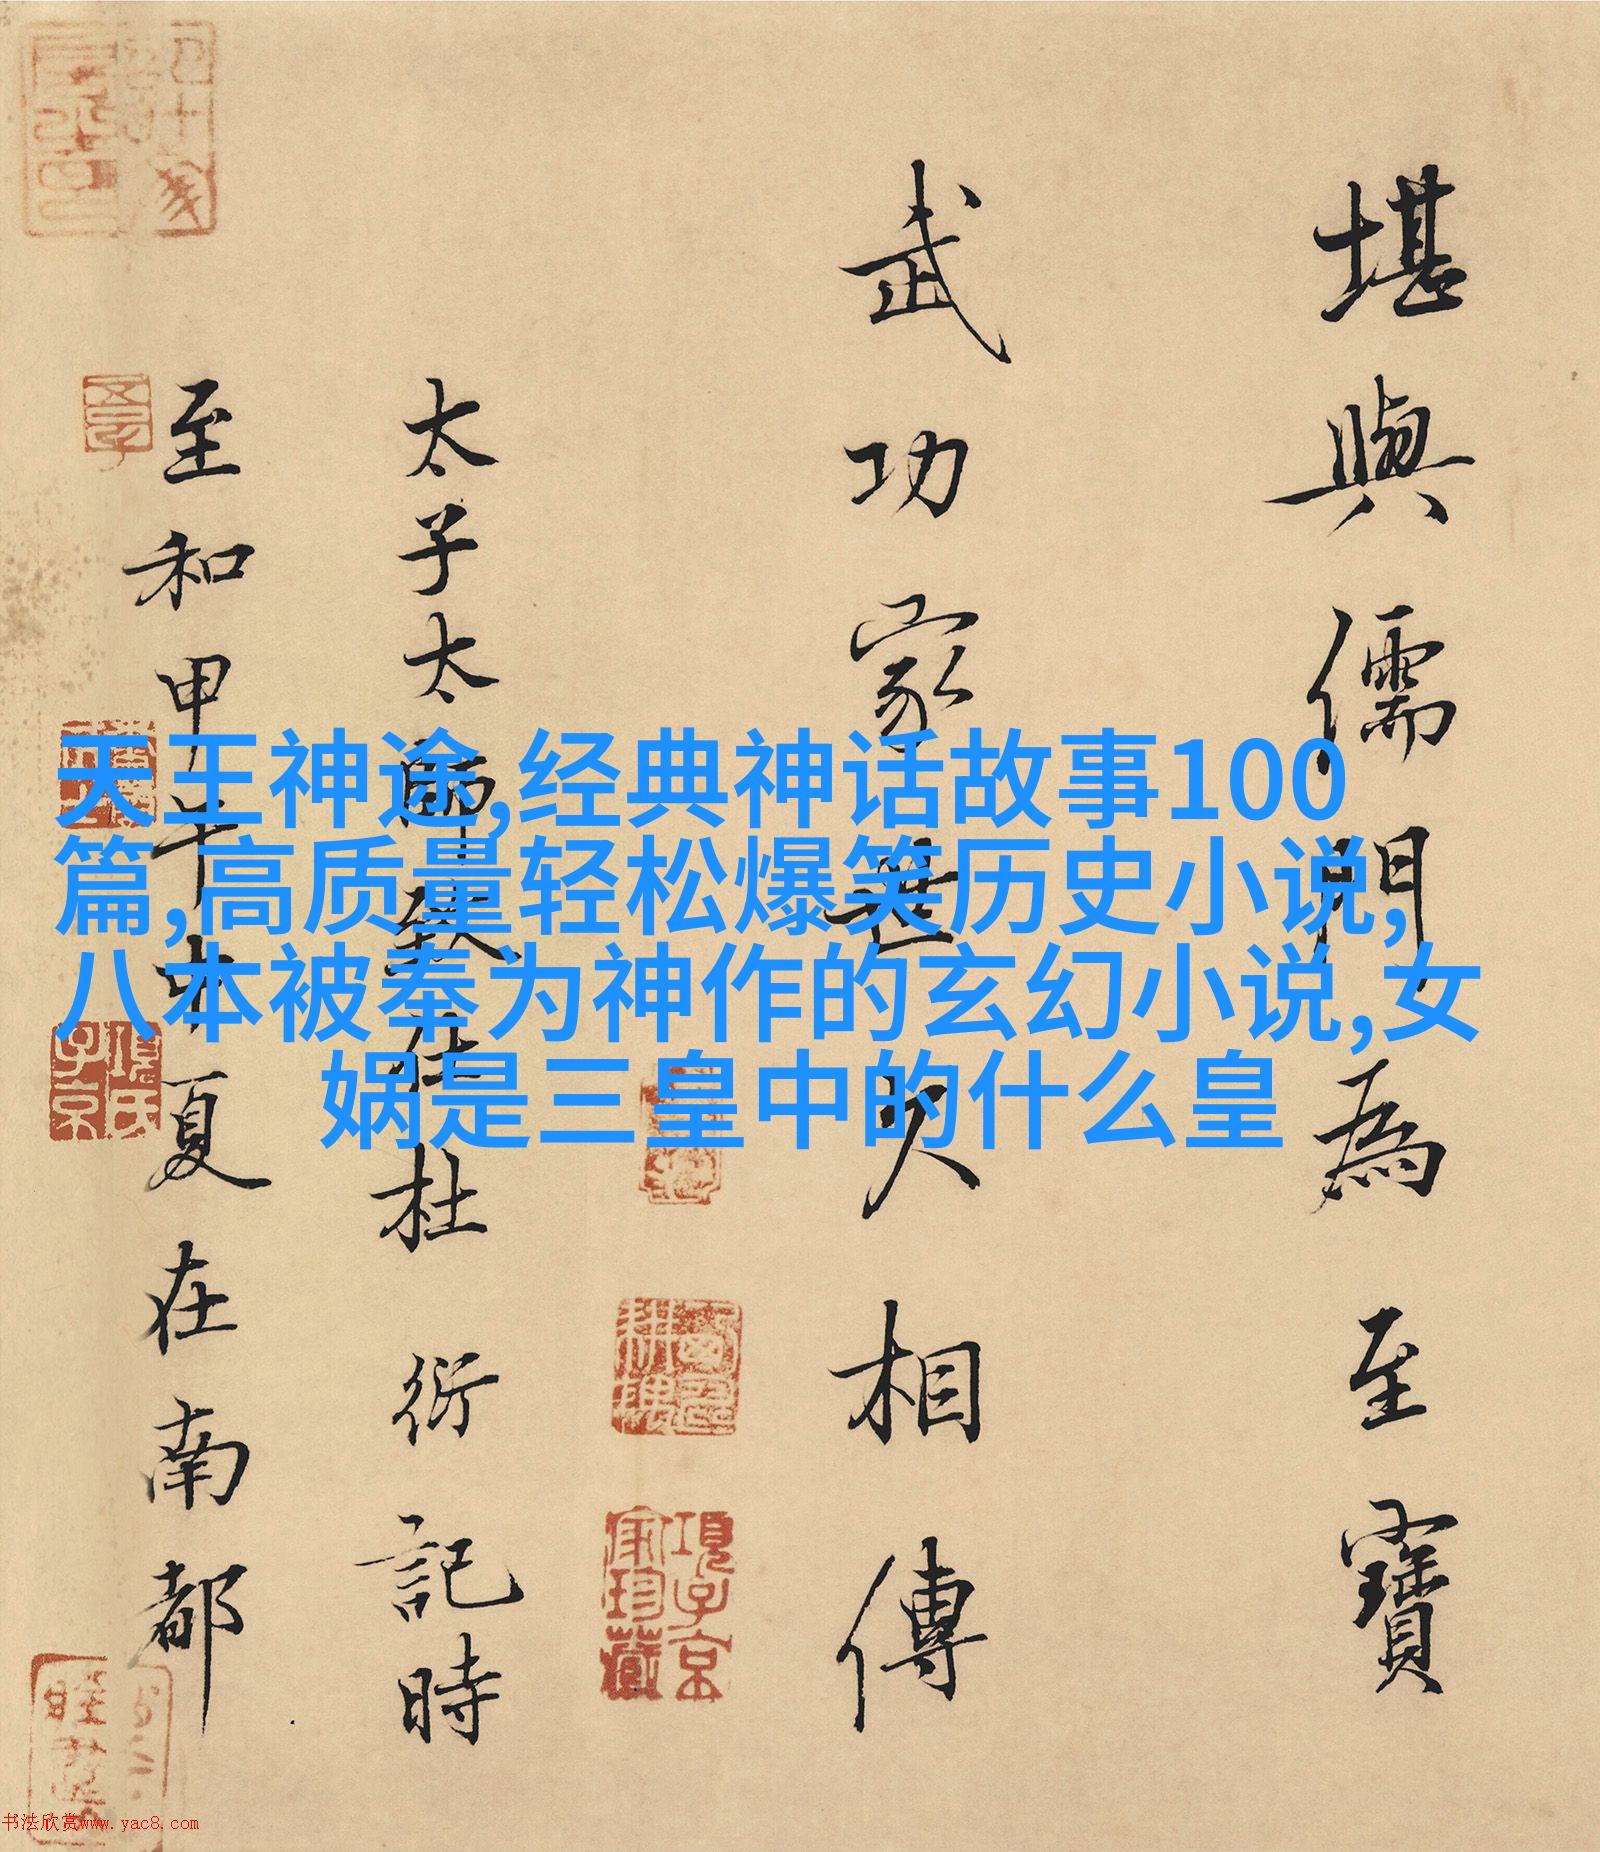 天王神途,经典神话故事100
篇,高质量轻松爆笑历史小说,
八本被奉为神作的玄幻小说,女
娲是三皇中的什么皇
堪與儒門為至寶
武功家世久相傳
太子太師致仕杜衍記時
至和甲午中夏在南都
項子京
家珍藏
項氏
子京
书法欣赏www.yac8.com